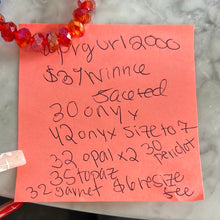 yrgurl2000
$37 Winnie
Saceted
30 onyx
42 onyx size to 7
32 opal x2 30
peridot
35 topaz
32 garnet $6 resize
fee